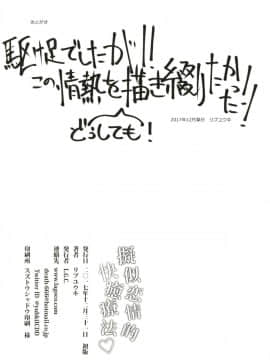 あとがき
駆け足でしたが!!
この情熱を描き綴りたかったー!
どうしても!
2017年12月発行 リブユウキ
擬似恋情的
快癒療法♡
発行日 二〇一七年十二月三十一日 初版
著者 リブユウキ
発行者 L.E.C.
連絡先
印刷所 スズトウシャドウ印刷 様